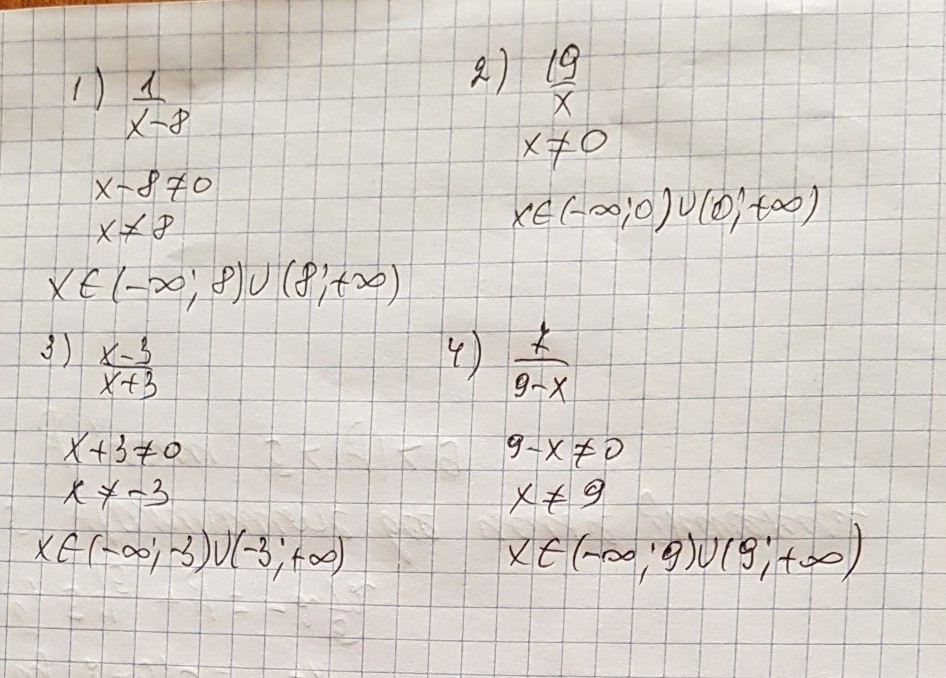 1) 1/(x-8)
x-8≠0
x≠8
x∈(-∞; 8)∪(8;+∞)
2) 19/x
x≠0
x∈(-∞;0)∪(0;+∞)
3) (x-3)/(x+3)
x+3≠0
x≠-3
x∈(-∞;-3)∪(-3;+∞)
4) 7/(9-x)
9-x≠0
x≠9
x∈(-∞;9)∪(9;+∞)